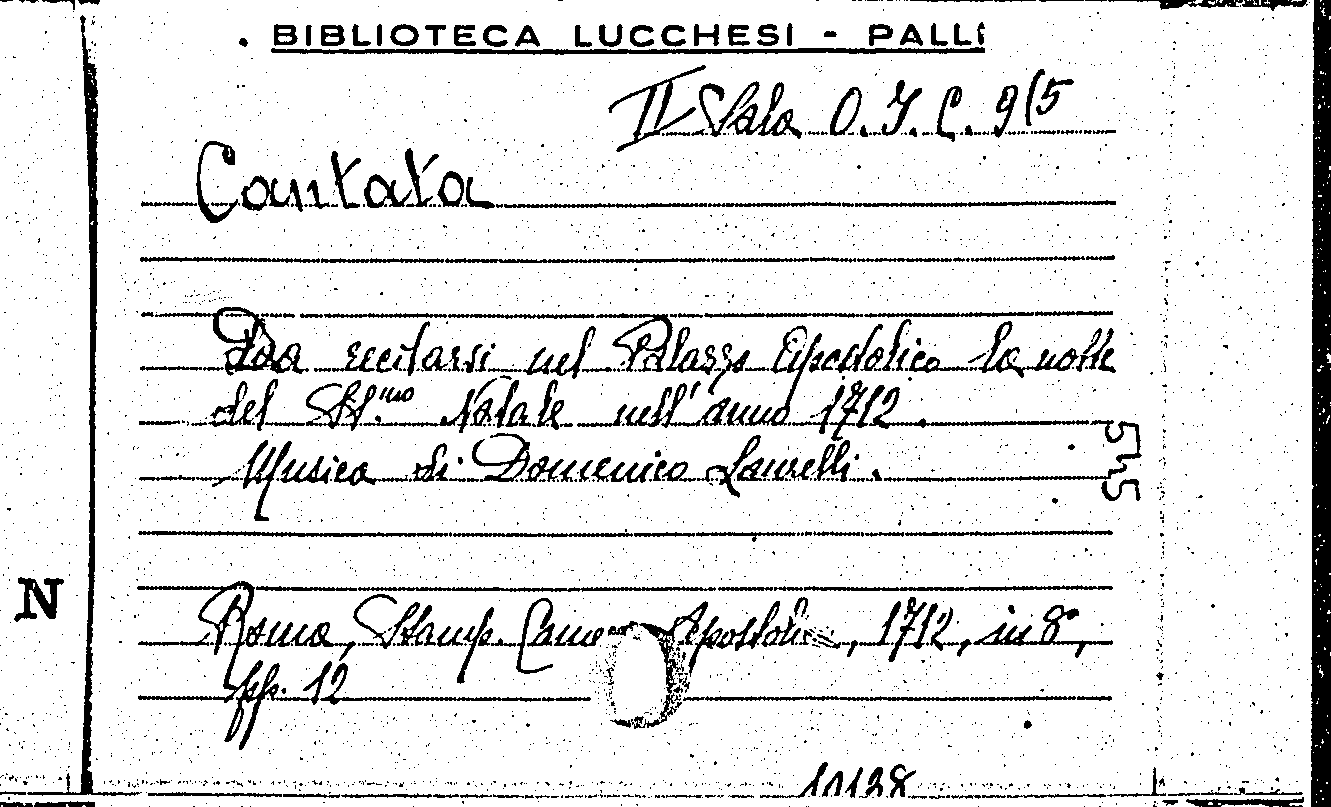 BIBLIOTECA LUCCHESI - PALLI
II Sala O. I. C. 9(5
Cantata
Daa recitarsi nel Palazzo Apostolico la notte
del SS.mo Natale nell'anno 1712.
Musica di Domenico Laurelli.
545
N
Roma, Stamp. Came Apostolica, 1712, in 8°,
pp. 12
10138